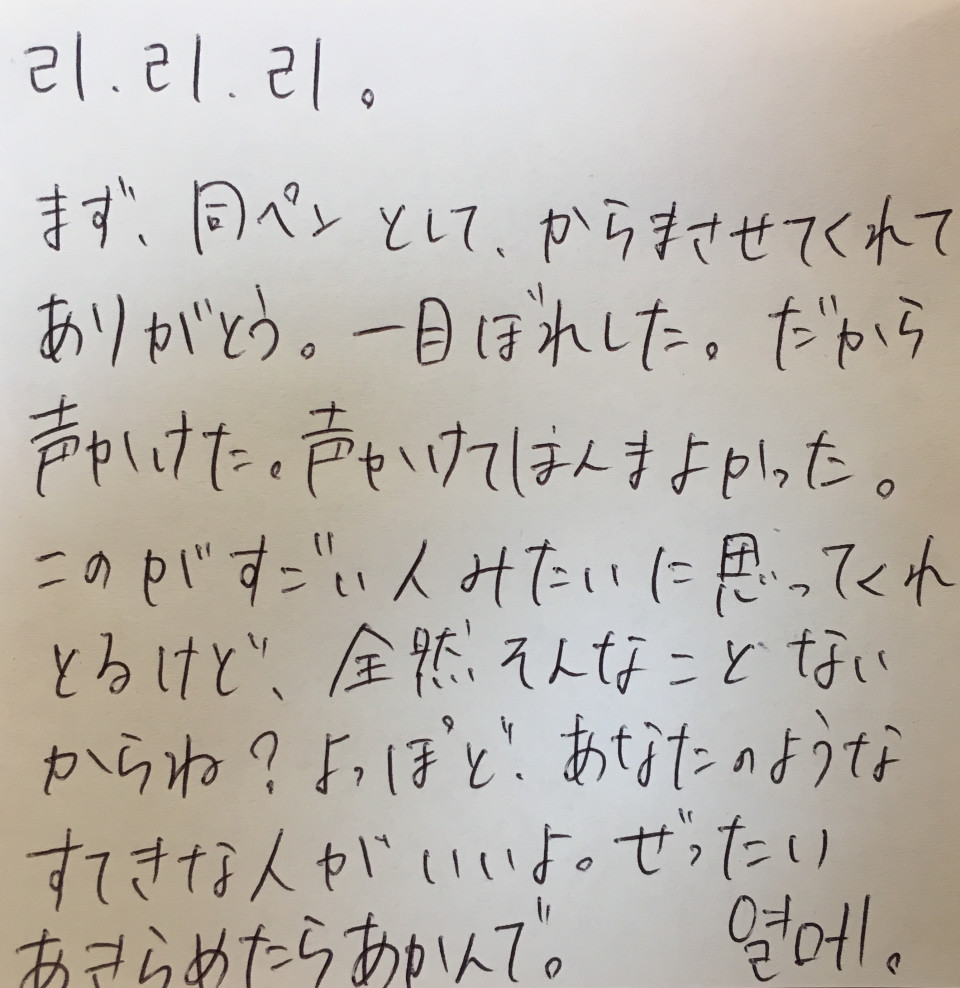 리.리.리。
まず、同ペンとして、からまさせてくれて
ありがとう。一目ぼれした。だから
声かけた。声かけてほんまよかった。
このがすごい人みたいに思ってくれ
とるけど、全然そんなことない
からね？よっぽど、あなたのような
すてきな人がいいよ。ぜったい
あきらめたらあかんで。 열매。